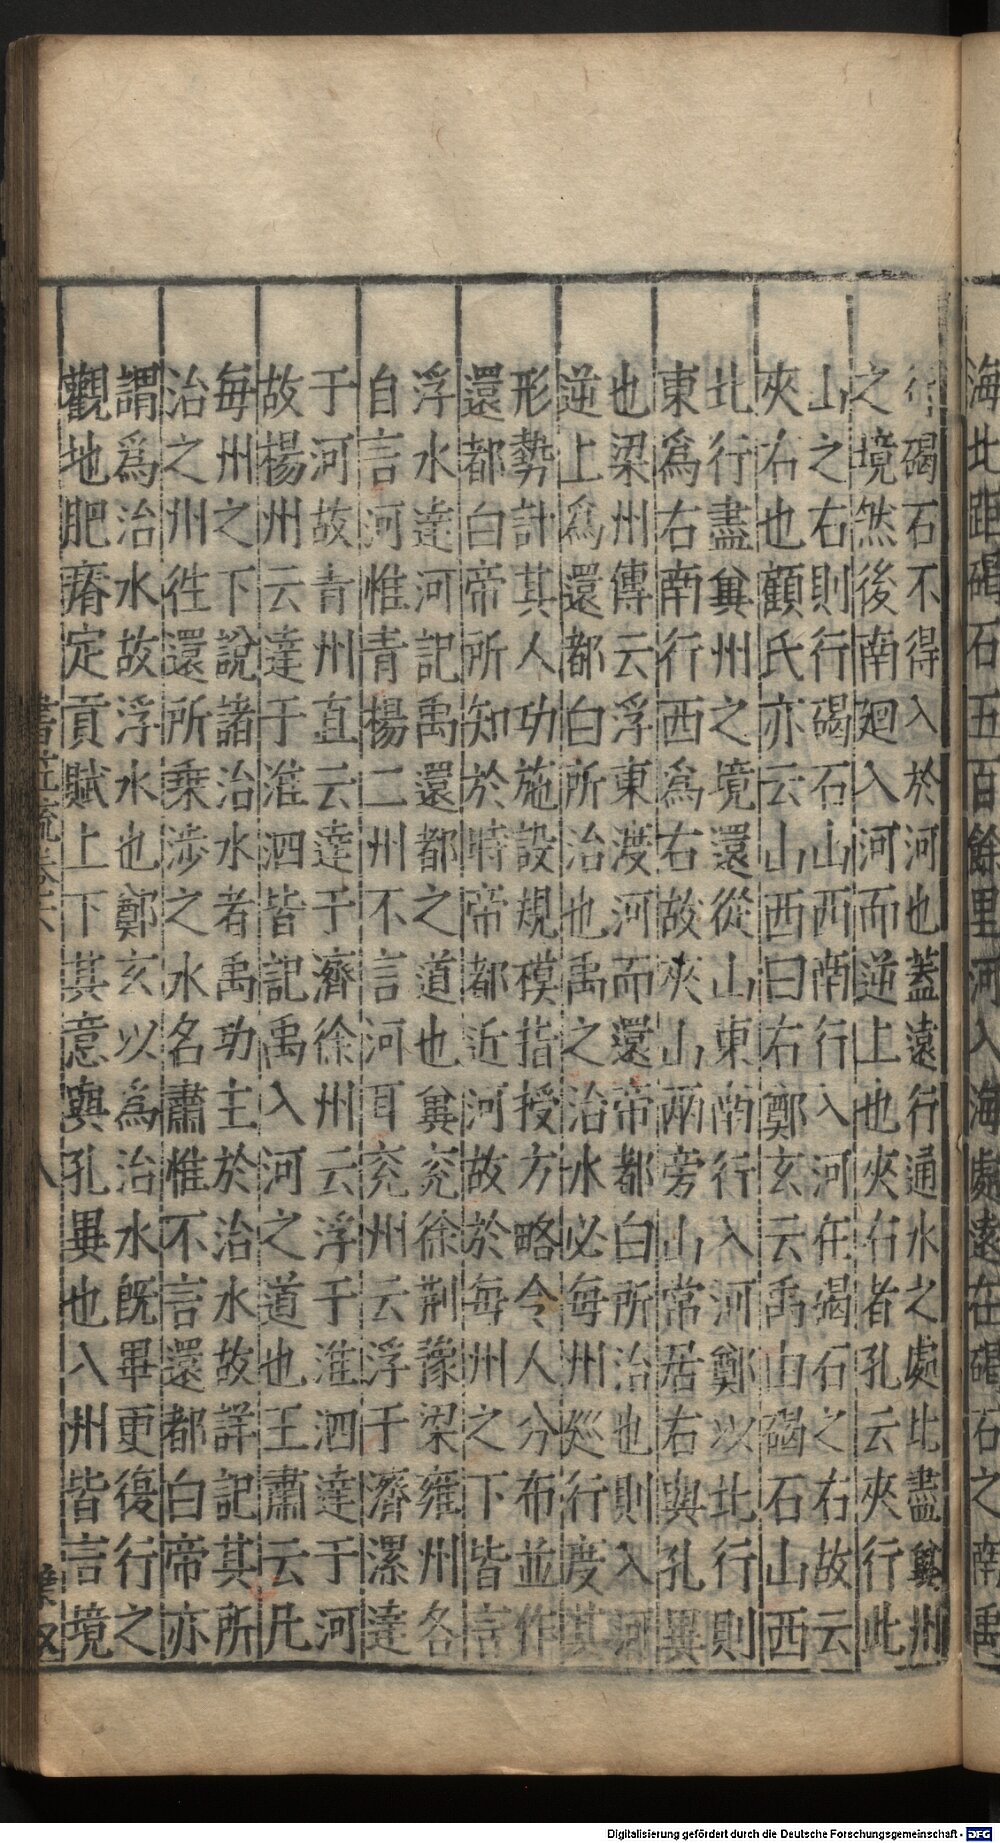 海北距碣石五百餘里河入海處遠在碣石之南禹
行碣石不得入於河也蓋遠行通水之處北盡兾州
之境然後南廻入河而逆上也夾右者孔云夾行此
山之右則行碣石山西南行入河在碣石之右故云
夾右也顧氏亦云山西曰右鄭玄云禹由碣石山西
北行盡兾州之境還從山東南行入河鄭以北行則
東爲右南行西爲右故夾山兩旁山常居右與孔異
也梁州傳云浮東渡河而還帝都白所治也則入河
逆上爲還都白所治也禹之治水必每州巡行度其
形勢計其人功施設規模指授方略令人分布並作
還都白帝所知於時帝都近河故於每州之下皆言
浮水達河記禹還都之道也兾兖徐荆豫梁雍州各
自言河惟青揚二州不言河耳兖州云浮于濟漯達
于河故青州直云達于濟徐州云浮于淮泗達于河
故楊州云達于淮泗皆記禹入河之道也王肅云凡
每州之下說諸治水者禹功主於治水故詳記其所
治之州徃還所乘涉之水名肅惟不言還都白帝亦
謂爲治水故浮水也鄭玄以為治水既畢更復行之
觀地肥瘠定貢賦上下其意與孔異也八州皆言境
書疏卷六
八
Digitalisierung gefördert durch die Deutsche Forschungsgemeinschaft - DFG